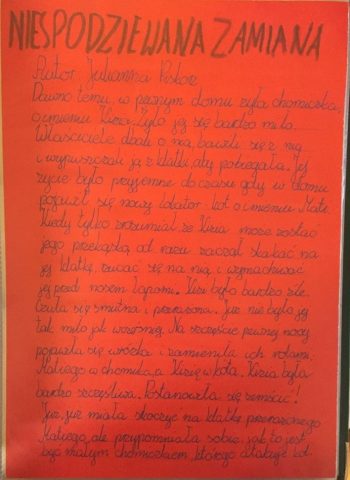 NIESPODZIEWANA ZAMIANA
Autor Julianna
Dawno temu, w pewnym domu żyła chomiczka
o imieniu Kizia. Żyło jej się bardzo miło.
Właściciele dbali o nią, bawili się z nią
i wypuszczali ją z klatki, aby pobiegała. Jej
życie było przyjemne do czasu gdy w domu
pojawił się nowy lokator - kot o imieniu
Kiedy tylko zrozumiał, że Kizia może zostać
jego przekąską od razu zaczął skakać na
jej klatkę, rzucać się na nią i wymachiwać
jej przed nosem łapami. Kizi było bardzo źle.
Czuła się smutna i przerażona. Już nie było jej
tak miło jak wcześniej. Na szczęście pewnej nocy
pojawiła się wróżka i zamieniła ich rolami.
w chomika, a Kizię w kota. Kizia była
bardzo szczęśliwa. Postanowiła się zemścić!
Już, już miała skoczyć na klatkę przerażonego
ale przypomniała sobie, jak to jest
być małym chomiczkiem, którego atakuje kot.